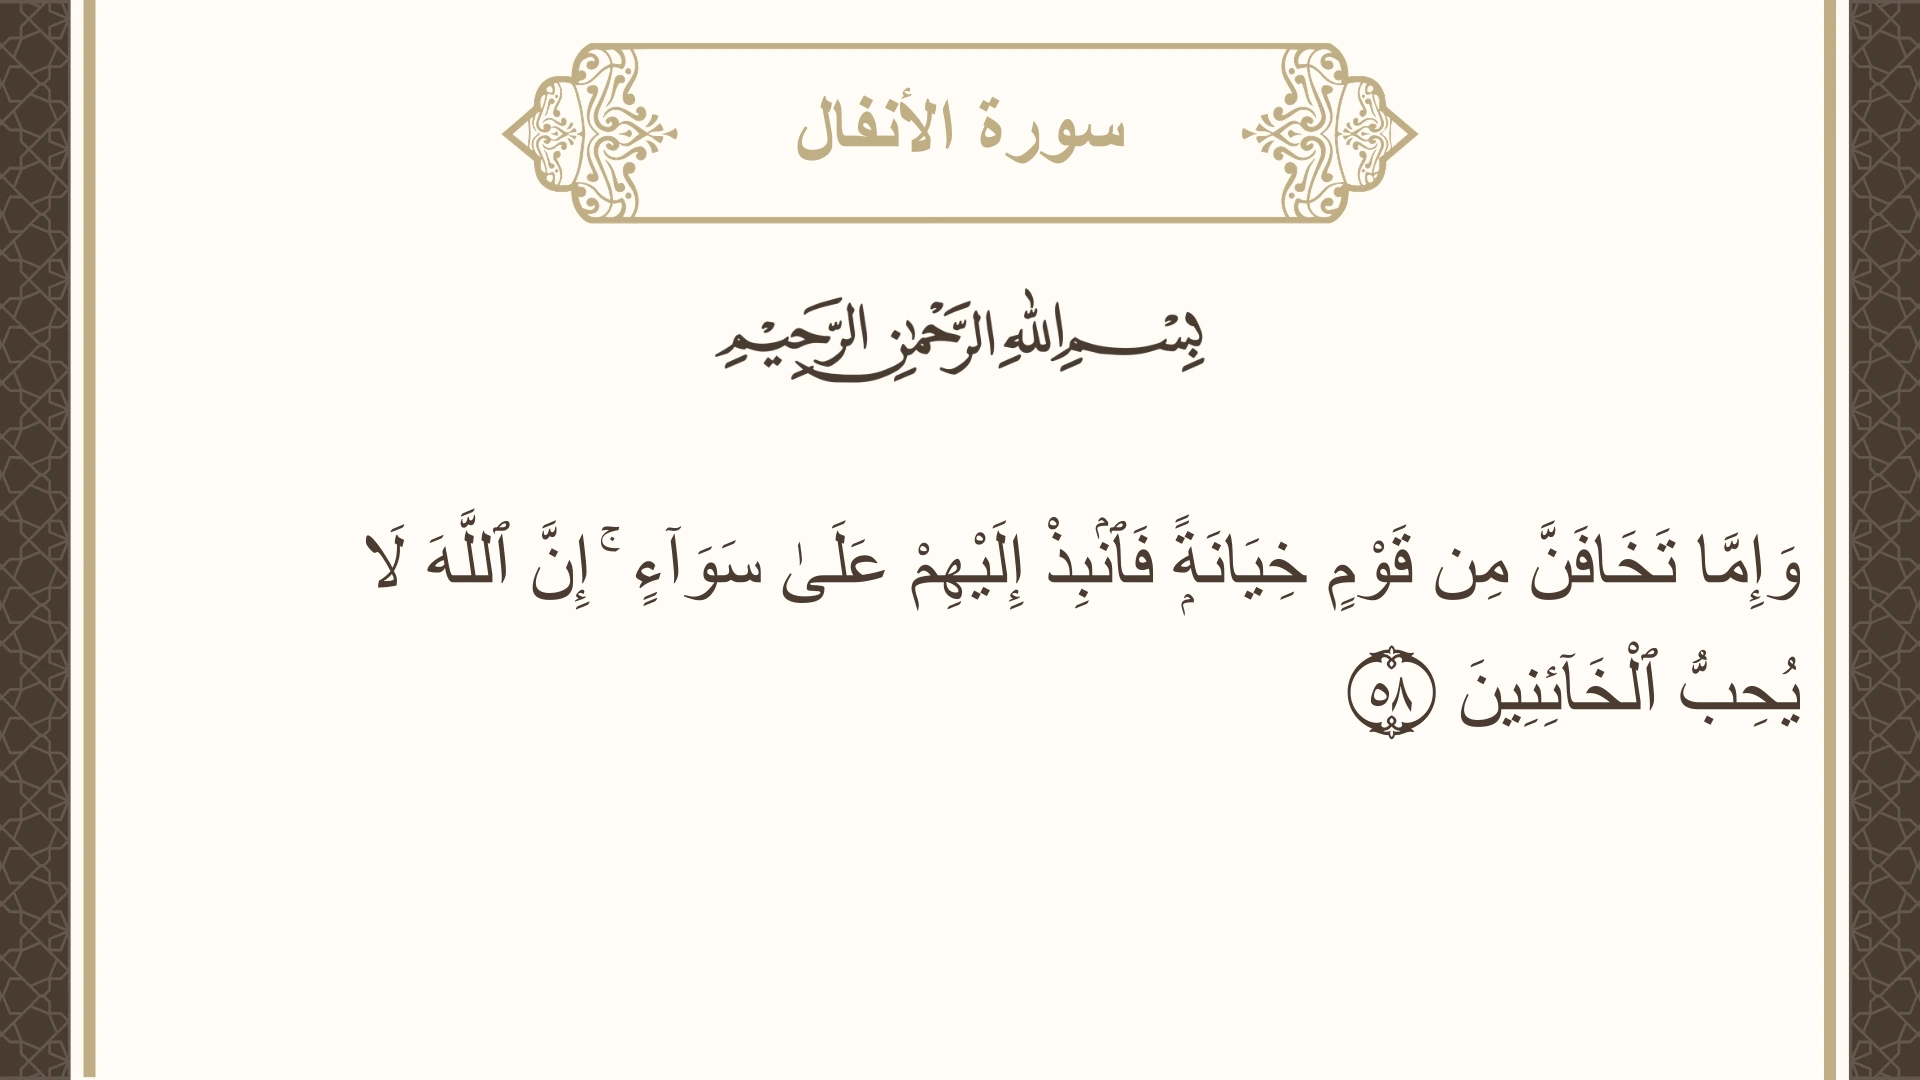 سورة الأنفال
بِسْمِ اللهِ الرَّحْمٰنِ الرَّحِيْمِ
وَإِمَّا تَخَافَنَّ مِن قَوْمٍ خِيَانَةًۭ فَٱنۢبِذْ إِلَيْهِمْ عَلَىٰ سَوَآءٍ ۚ إِنَّ ٱللَّهَ لَا
يُحِبُّ ٱلْخَآئِنِينَ ٥٨